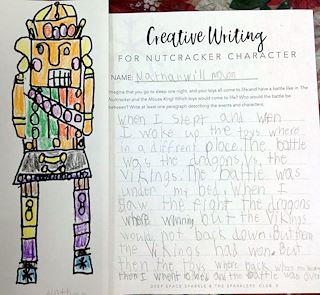 Creative Writing
FOR NUTCRACKER CHARACTER
NAME: Nathan will moon
Imagine that you go to sleep one night, and your toys all come to life and have a battle like in The
Nutcracker and the Mouse King! Which toys would come to life? Who would the battle be
between? Write at least one paragraph describing the events and characters.
when I slept and when
I woke up the toys where
in a diffrent place. The battle
was the dragons vs the
Vikings. The battle was
under my bed. When I
saw the fight the dragons
where winning but the Vikings
would not back down. But then
the Vikings had won. But
then the toys where back when
then I whent to bed and the battle was over
DEEP SPACE SPARKLE & THE SPARKLERS CLUB